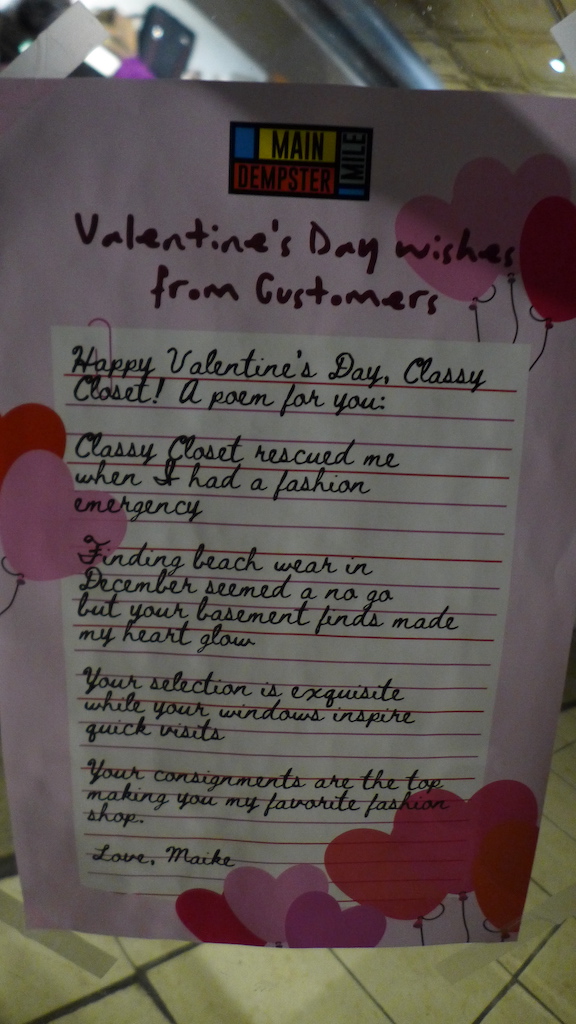 MAIN
MILE
DEMPSTER
Valentine's Day wishes
from Customers
Happy Valentine's Day, Classy
Closet! A poem for you:
Classy Closet rescued me
when I had a fashion
emergency
Finding beach wear in
December seemed a no go
but your basement finds made
my heart glow
Your selection is exquisite
while your windows inspire
quick visits
Your consignments are the top
making you my favorite fashion
shop.
Love, Maike